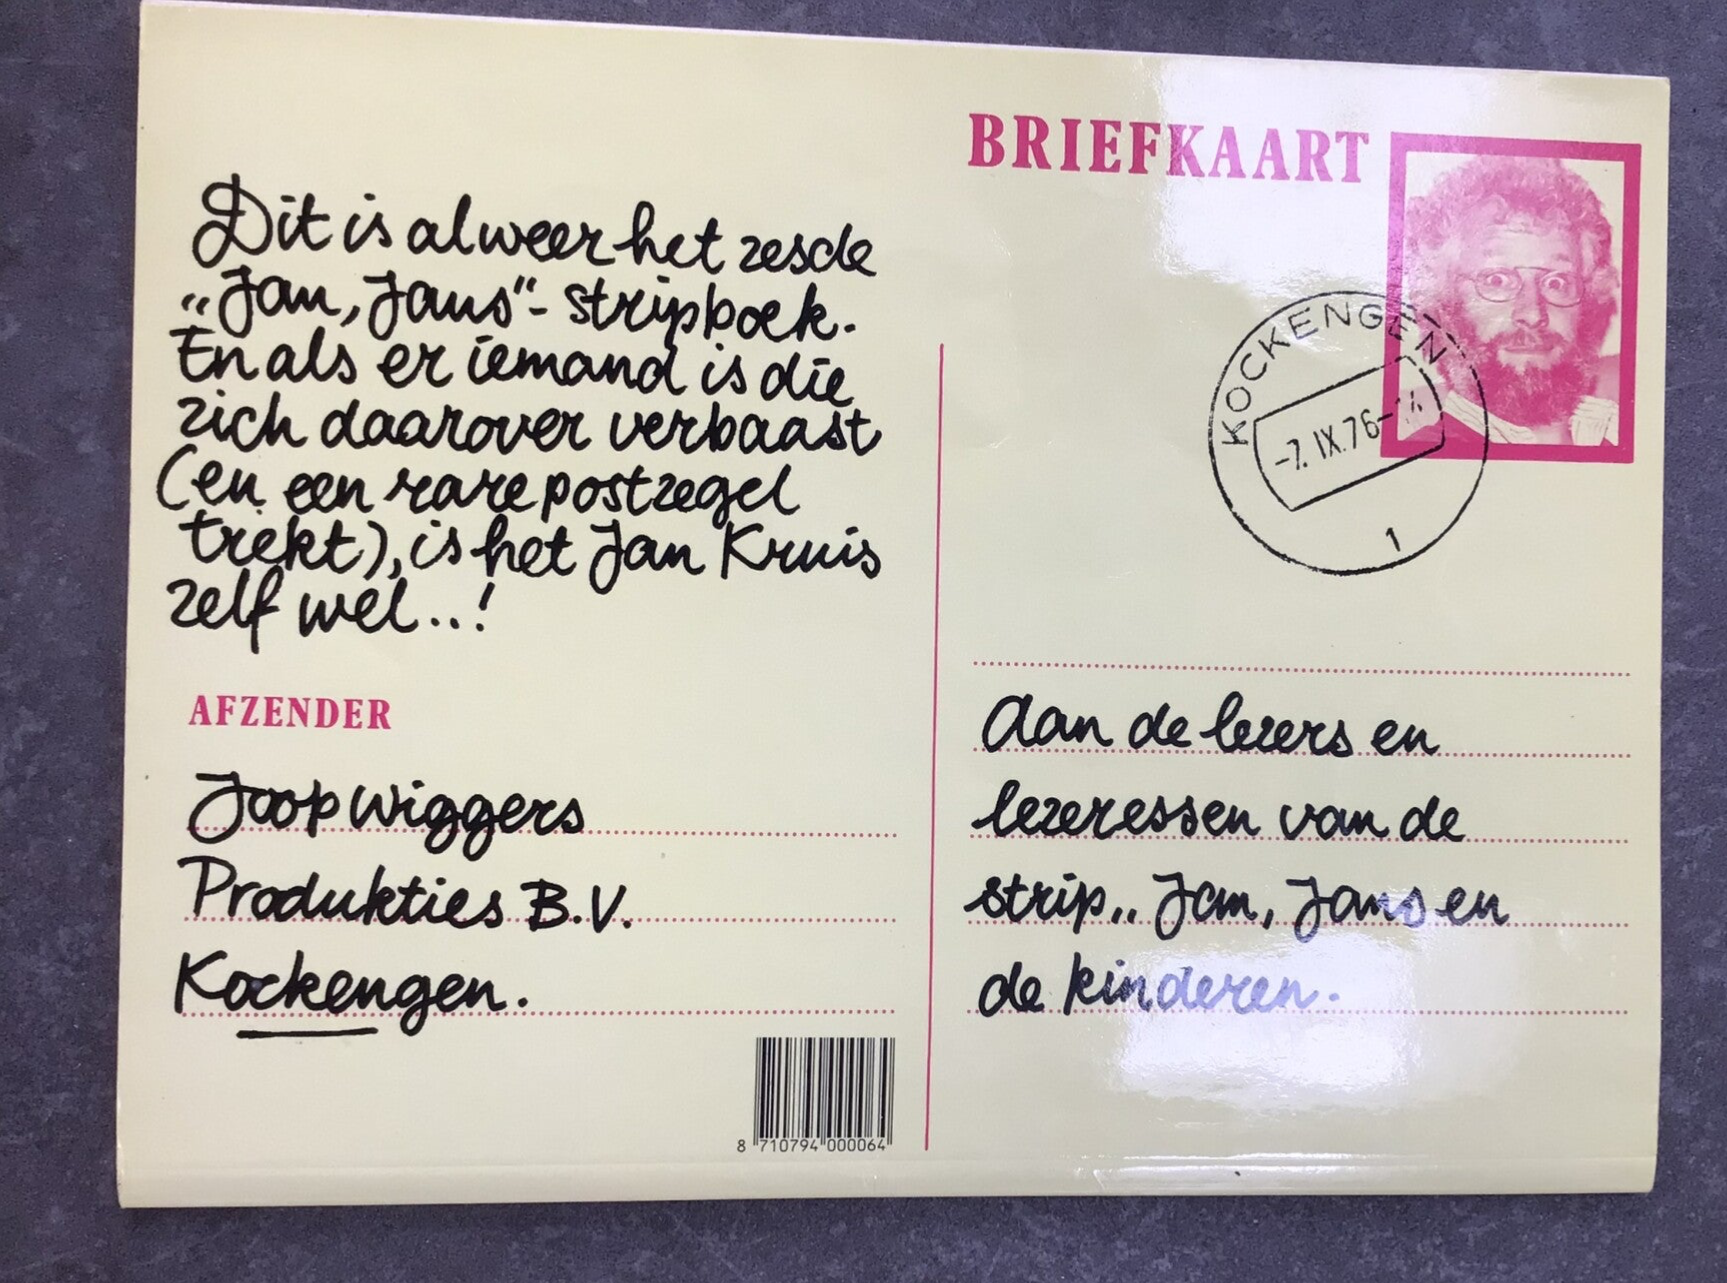 BRIEFKAART
KOCKENGEN
-7.IX.76-
1
Dit is alweer het zesde
„Jan, Jans“- stripboek.
En als er iemand is die
zich daarover verbaast
(en een rare postzegel
trekt), is het Jan Kruis
zelf wel...!
AFZENDER
Joop Wiggers
Produkties B.V.
Kockengen.
8 710794 000064
Aan de lezers en
lezeressen van de
strip „ Jan, Jans en
de kinderen.